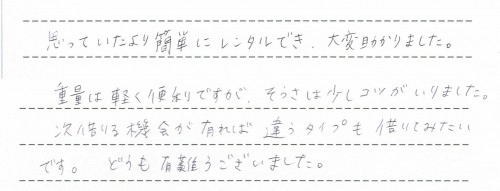 思っていたより簡単にレンタルでき、大変助かりました。
重量は軽く便利ですが、そうさは少しコツがいりました。
次借りる機会が有れば違うタイプも借りてみたい
です。 どうも有難うございました。